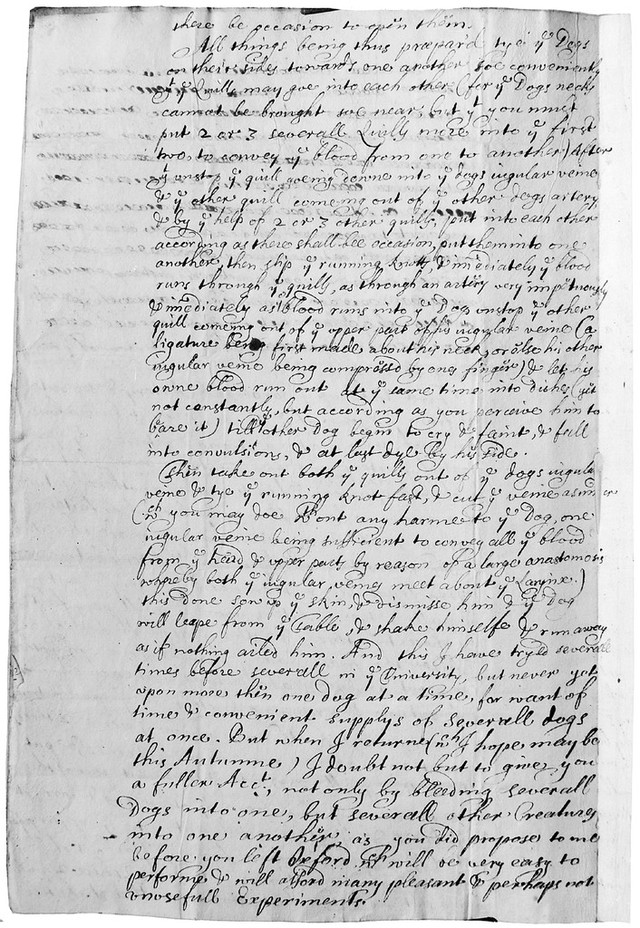 there be occasion to open them.
All things being thus præpar'd tye yͤ Dogs
on their sides towards one another soe conveniently
yͭ yͤ Quills may goe into each other (for yͤ Dogs necks
cannot be brought soe near, but yͭ you must
put 2 or 3 severall Quills more into yͤ first
two, to convey yͤ blood from one to another) After
yͭ unstop yͤ quill goeing downe into yͤ dogs iugular veine
& yͤ other quill comeing out of yͤ other dogs artery
& by yͤ help of 2 or 3 other quills, put into each other
according as there shall bee occasion, put them into one
another, then slip yͤ running knotts, & imediately yͤ blood
runs through yͤ quills, as through an artery very impetuously
& imediately as blood runs into yͤ Dogs unstop yͤ other
quill comeing out of yͤ upper part of his iugular veine (a
ligature being first made about his neck, or else his other
iugular veine being compressed by ones finger) & let his
owne blood run out at yͤ same time into dishes (yet
not constantly, but according as you perceive him to
beare it) till yͤ other Dog begin to cry & faint, & fall
into convulsions, & at last dye by his side.
Then take out both yͤ quills out of yͤ dogs iugular
veine & tye yͤ running knot fast, & cut yͤ veine asunder
(wͨͪ you may doe wͭͪout any harme to yͤ Dog, one
iugular veine being sufficient to convey all yͤ blood
from yͤ head & upper parts by reason of a large anastomosis
whereby both yͤ iugular veines meet about yͤ Larynx.)
this done sow up yͤ skin, & dismisse him & yͤ Dog
will leape from yͤ Table, & shake himselfe & run away
as if nothing ailed him. And this I have tryed severall
times before severall in yͤ University, but never yet
upon more then one dog at a time, for want of
time & convenient supplys of severall dogs
at once. But when I returne (wͨͪ I hope may be
this Autumne) I doubt not but to give you
a fuller Accͭ, not only by bleeding severall
Dogs into one, but severall other Creatures
into one another, as you did propose to me
before you left Oxford wͨͪ will be very easy to
performe & will afford many pleasant & perhaps not
unusefull Experiments.